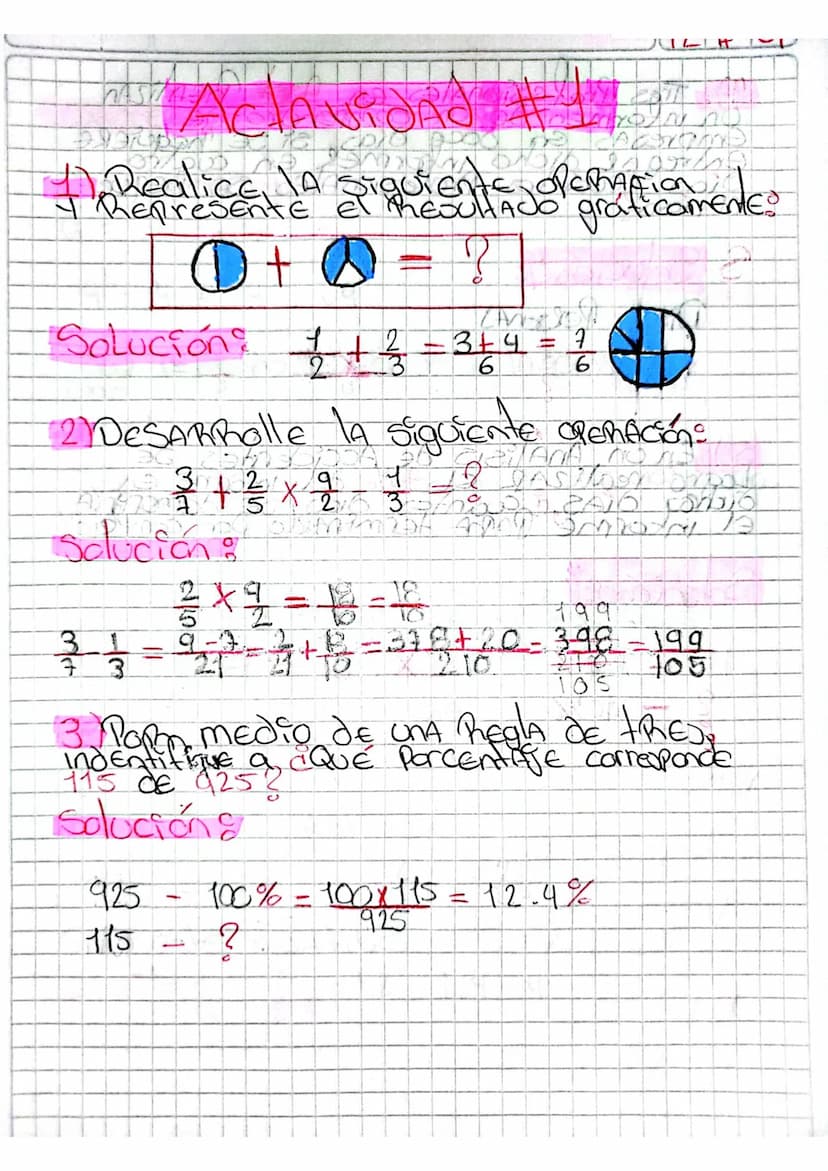 Actavidad #1
1). Realice la siguiente operafion
y represente el resultado gráficamente:
+ = ?
Solución: 1/2 + 2/3 = 3+4/6 = 7/6
2) Desarrolle la siguiente operación:
3/7 + 2/5 x 9/2 - 1/3 = ?
Solución:
2/5 x 9/2 = 18/10 = 18/10
3/7 - 1/3 = 9-7/21 = 2/21 + 18/10 = 378+20/210 = 398/210 = 199/105
199
105
3) Por medio de una regla de tres,
indentifique a ¿Qué porcentaje corresponde
115 de 925?
Solución:
925 - 100% = 100x115/925 = 12.4%
115 - ?